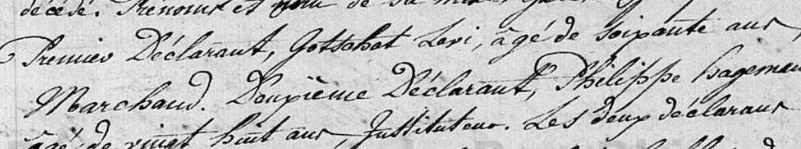 décédé. Prénoms et nom de sa mère
Premier Déclarant, Gotschot Levi, âgé de soixante ans,
Marchand. Deuxième Déclarant, Philippe hageman
âgé de vingt huit ans, Instituteur. Les deux déclarans